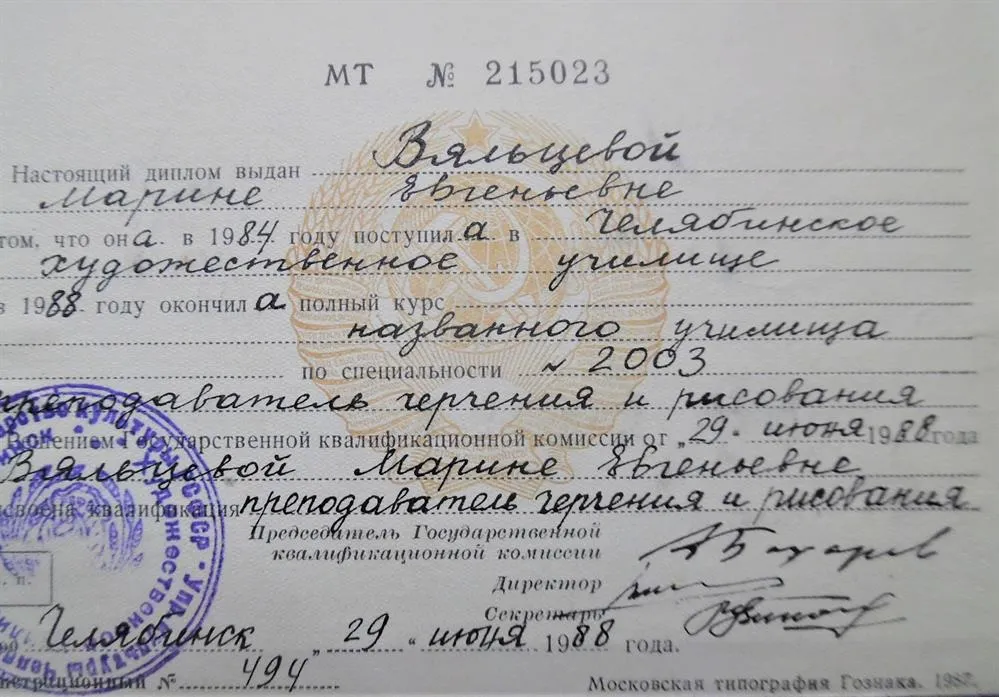 МТ № 215023
Настоящий диплом выдан Вяльцевой
Марине Евгеньевне
том, что она в 1984 году поступила в Челябинское
художественное училище
в 1988 году окончила полный курс
названного училища
по специальности N 2003
преподаватель черчения и рисования
Решением Государственной квалификационной комиссии от „29" июня 1988 года
Вяльцевой Марине Евгеньевне
своена квалификация преподаватель черчения и рисования
Председатель Государственной
квалификационной комиссии
Директор
Секретарь
Челябинск „29" июня 1988 года.
истрационный № 494
Московская типография Гознака. 1987.